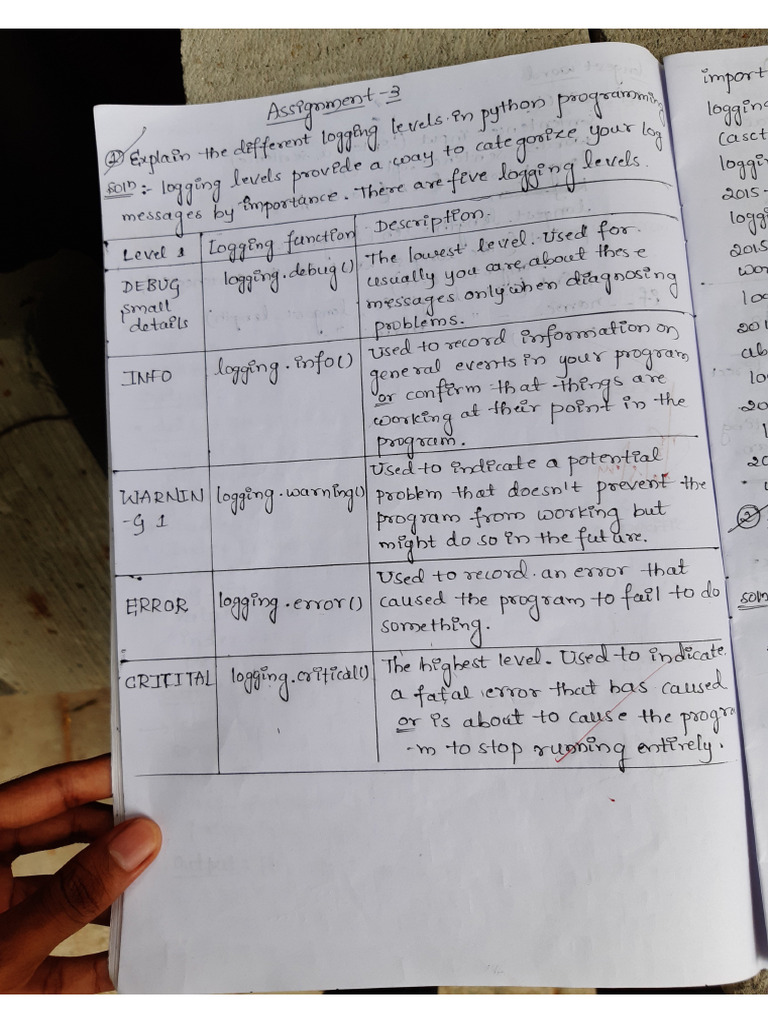 Assignment-3
1) Explain the different logging levels in python programming
Soln :- logging levels provide a way to categorize your log
messages by importance. There are five logging levels.
Level 1
Logging function
Description.
DEBUG
small
details
logging.debug()
The lowest level. Used for
usually you care about these
messages only when diagnosing
problems.
INFO
logging.info()
Used to record information on
general events in your program
or confirm that things are
working at their point in the
program.
WARNIN
-G 1
logging.warning()
Used to indicate a potential
problem that doesn't prevent the
program from working but
might do so in the future.
ERROR
logging.error()
Used to record an error that
caused the program to fail to do
something.
CRITITAL
logging.critical()
The highest level. Used to indicate
a fatal error that has caused
or is about to cause the progra
-m to stop running entirely.
import
logging
(asct
loggi
2015-
logg
2015
wor
log
201
ab
lo
20
20
2)
soln